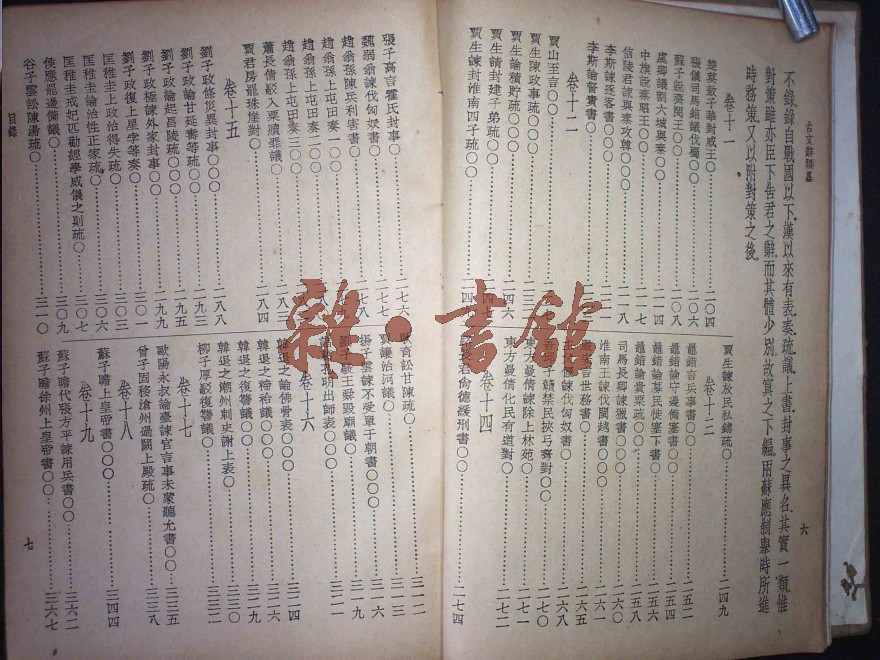 古文辭類纂
六
不錄。錄自戰國以下。漢以來有表。奏。疏。議。上書。封事之異名。其實一類。惟
對策雖亦臣下告君之辭。而其體少別。故寘之下編。兩蘇應制舉時所進
時務策。又以附對策之後。
卷十一
楚莫敖子華對威王〇……二〇四
張儀司馬錯議伐蜀〇〇……二〇六
蘇子說齊閔王〇〇……二〇八
虞卿議割六城與秦〇〇……二一四
中旗說秦昭王〇〇……二一六
信陵君諫與秦攻韓〇〇〇……二一八
李斯諫逐客書〇〇〇……二二一
李斯論督責書〇〇
卷十二
賈山至言〇〇
賈生陳政事疏〇〇〇
賈生論積貯疏〇〇〇
賈生請封建子弟疏〇〇
賈生諫封淮南四子疏〇〇
賈生諫放民私鑄疏〇……二四九
卷十三
鼂錯言兵事書〇〇……二五二
鼂錯論守邊備塞書〇〇……二五四
鼂錯論募民徙塞下書〇……二五六
鼂錯論貴粟疏〇〇……二五八
司馬長卿諫獵書〇〇〇……二六〇
淮南王諫伐閩越書〇〇……二六一
嚴安言世務書〇〇……二六五
主父偃諫伐匈奴書〇……二六八
吾邱子贛禁民挾弓弩對〇〇……二七〇
東方曼倩諫除上林苑〇〇……二七一
東方曼倩化民有道對〇〇……二七二
卷十四
路長君尚德緩刑書〇〇……二七四
張子高言霍氏封事〇……二七六
魏弱翁諫伐匈奴書〇〇……二七七
趙翁孫陳兵利害書〇……二七八
趙翁孫上屯田奏一〇〇
趙翁孫上屯田奏二〇〇
趙翁孫上屯田奏三〇〇
蕭長倩駁入粟贖罪議〇
賈君房罷珠崖對〇……二八四
卷十五
劉子政條災異封事〇〇〇……二八八
劉子政論甘延壽等疏〇……二九三
劉子政論起昌陵疏〇〇……二九五
劉子政極諫外家封事〇〇……二九九
劉子政復上星孛等奏〇……三〇一
匡稚圭上政治得失疏〇……三〇三
匡稚圭論治性正家疏〇……三〇六
匡稚圭戒妃匹勸經學威儀之則疏〇……三〇七
侯應罷邊備議〇……三〇九
谷子雲訟陳湯疏〇……三一〇
耿育訟甘陳疏〇……三一二
賈讓治河議〇〇……三一三
揚子雲諫不受單于朝書〇〇〇……三一六
劉子駿王舜毀廟議〇……三一九
諸葛孔明出師表〇〇〇
卷十六
韓退之論佛骨表〇〇……三二四
韓退之禘祫議〇〇……三二六
韓退之復讐議〇……三二九
韓退之潮州刺史謝上表〇……三三〇
柳子厚駁復讐議〇……三三二
卷十七
歐陽永叔論臺諫官言事未蒙聽允書〇〇……三三五
曾子固移滄州過闕上殿疏〇……三三八
卷十八
蘇子瞻上皇帝書〇〇〇……三四四
卷十九
蘇子瞻代張方平諫用兵書〇〇……三六二
蘇子瞻徐州上皇帝書〇〇……三六七
目錄
七
雜·書館